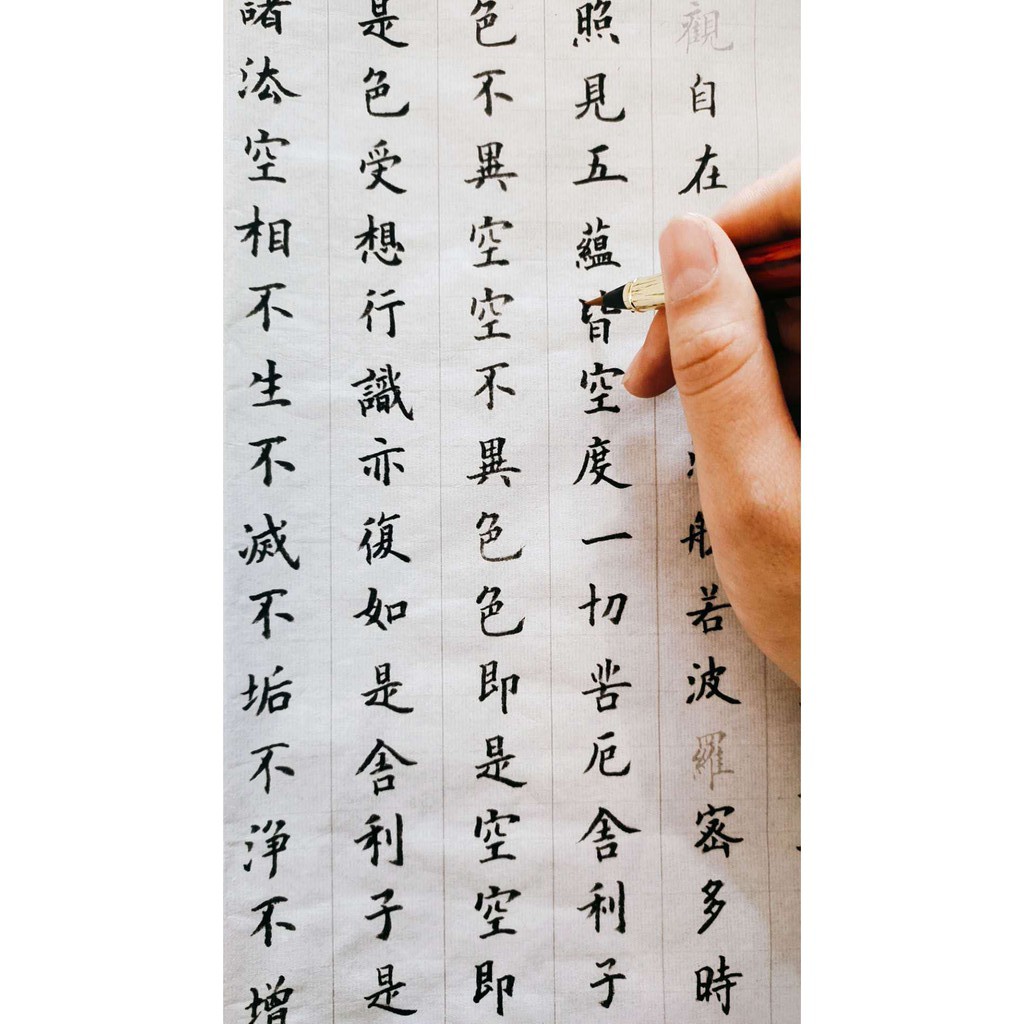 觀自在般若波羅密多時
照見五蘊皆空度一切苦厄舍利子
色不異空空不異色色即是空空即
是色受想行識亦復如是舍利子是
諸法空相不生不滅不垢不淨不增